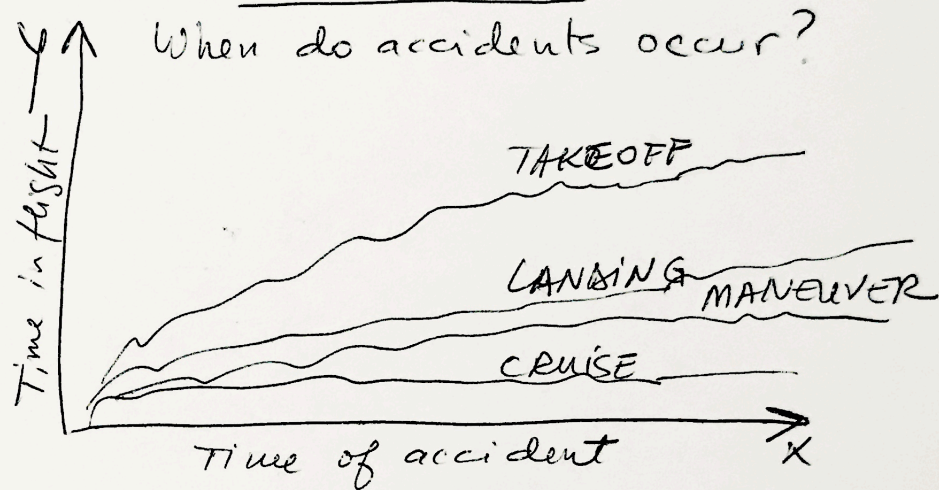 When do accidents occur?
Y
Time in flight
TAKEOFF
LANDING
MANEUVER
CRUISE
Time of accident
X